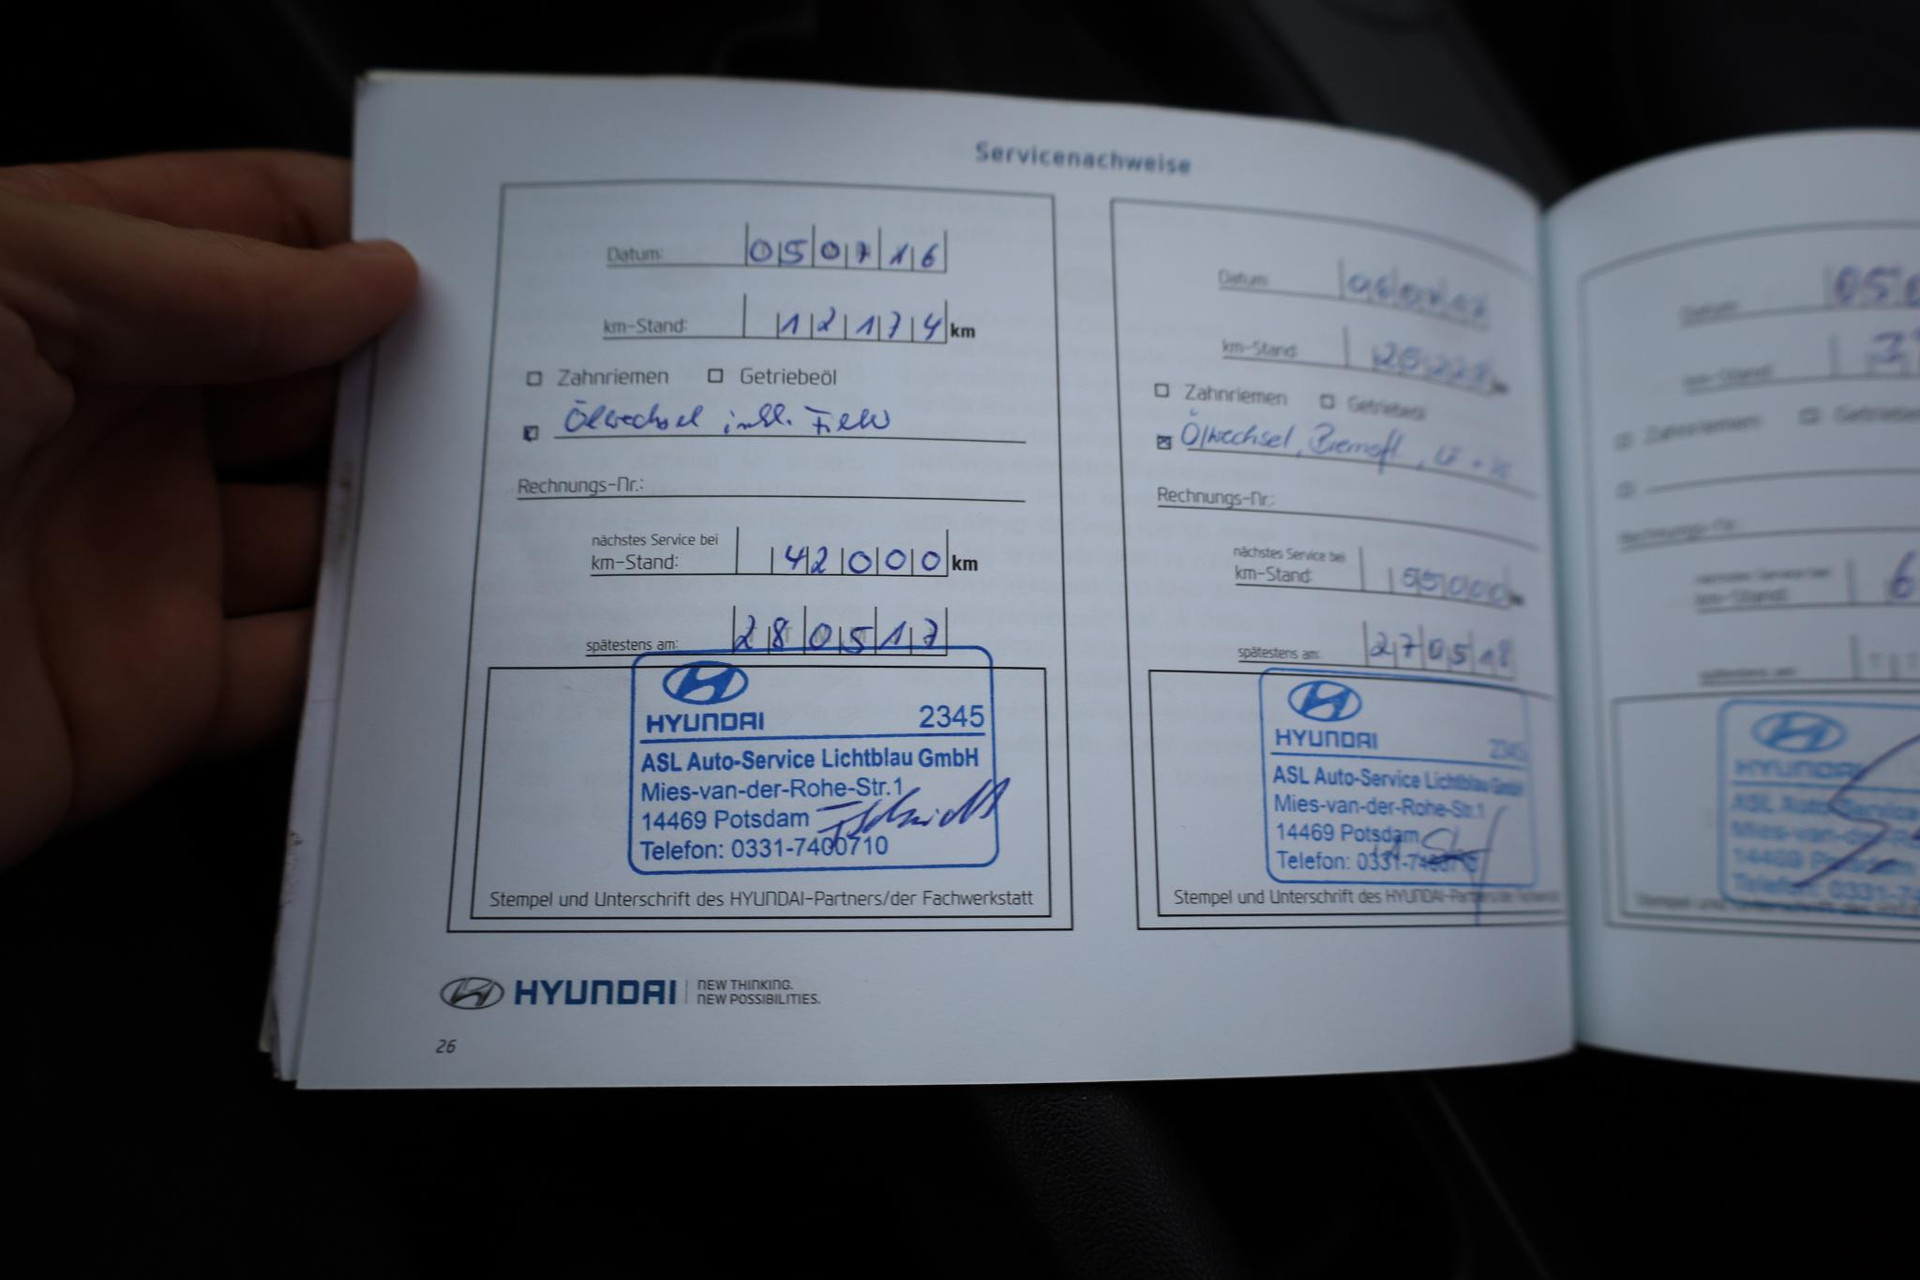 Servicenachweise
Datum: 05 07 16
km-Stand: 12174 km
Zahnriemen Getriebeöl
Ölwechsel inkl. Filter
Rechnungs-Nr.:
nächstes Service bei
km-Stand: 42000 km
spätestens am: 28 05 17
HYUNDAI 2345
ASL Auto-Service Lichtblau GmbH
Mies-van-der-Rohe-Str.1
14469 Potsdam
Telefon: 0331-7400710
Stempel und Unterschrift des HYUNDAI-Partners/der Fachwerkstatt
Datum:
km-Stand:
Zahnriemen Getriebeöl
Ölwechsel,
Rechnungs-Nr.:
nächstes Service bei
km-Stand: 55000
spätestens am: 27 05 18
HYUNDAI 2345
ASL Auto-Service Lichtblau GmbH
Mies-van-der-Rohe-Str.1
14469 Potsdam
Telefon: 0331-7400710
Stempel und Unterschrift des HYUNDAI-Partners/der
Datum: 050
km-Stand:
Zahnriemen
Rechnungs-Nr.:
nächstes Service bei
km-Stand: 6
spätestens am:
HYUNDAI
ASL Auto-Service
Mies-van-der-Ro
14469 Potsdam
Telefon: 0331-74
HYUNDAI NEW THINKING.
NEW POSSIBILITIES.
26